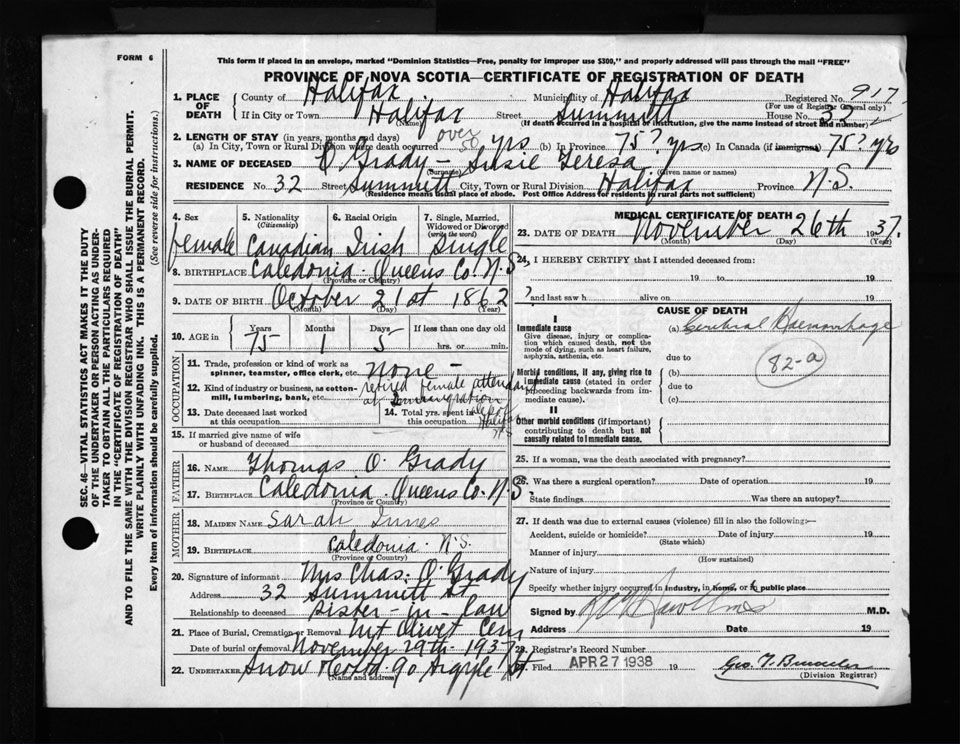 FORM 6
This form if placed in an envelope, marked "Dominion Statistics—Free, penalty for improper use $300," and properly addressed will pass through the mail "FREE"
PROVINCE OF NOVA SCOTIA—CERTIFICATE OF REGISTRATION OF DEATH
1. PLACE OF DEATH County of Halifax Municipality of Halifax Registered No. 917
(For use of Registrar General only)
If in City or Town Halifax Street Summitt House No. 32
(Name) (If death occurred in a hospital or institution, give the name instead of street and number)
2. LENGTH OF STAY (in years, months and days)
(a) In City, Town or Rural Division where death occurred over 50 yrs (b) In Province 75? yrs (c) In Canada (if immigrant) 75? yrs
3. NAME OF DECEASED O'Grady - Susie Teresa
(Surname) (Given name or names)
RESIDENCE No. 32 Street Summitt City, Town or Rural Division Halifax Province N.S.
(Residence means usual place of abode. Post Office Address for residents in rural parts not sufficient)
4. Sex female
5. Nationality (Citizenship) Canadian
6. Racial Origin Irish
7. Single, Married, Widowed or Divorced (write the word) Single
8. BIRTHPLACE Caledonia. Queens Co. N.S
(Province or Country)
9. DATE OF BIRTH October 21st 1862
(Month) (Day) (Year)
10. AGE in Years 75 Months 1 Days 5 If less than one day old
hrs. or min.
OCCUPATION
11. Trade, profession or kind of work as spinner, teamster, office clerk, etc. None -
12. Kind of industry or business, as cotton-mill, lumbering, bank, etc. retired female attendant
at Immigration Depot Halifax N.S
13. Date deceased last worked at this occupation
14. Total yrs. spent in this occupation
15. If married give name of wife or husband of deceased
FATHER
16. NAME Thomas O. Grady
17. BIRTHPLACE Caledonia. Queens Co. N.S.
(Province or Country)
MOTHER
18. MAIDEN NAME Sarah Innes
19. BIRTHPLACE Caledonia. N.S.
(Province or Country)
20. Signature of informant Mrs Chas. O'Grady
Address 32 Summitt St
Relationship to deceased sister-in-law
21. Place of Burial, Cremation or Removal Mt Olivet Cem
Date of burial or removal November 29th. 1937
22. UNDERTAKER Snow & Co Ltd. 90 Argyle St
(Name and address)
MEDICAL CERTIFICATE OF DEATH
23. DATE OF DEATH November 26th 1937.
(Month) (Day) (Year)
24. I HEREBY CERTIFY that I attended deceased from:
19 to 19
and last saw h alive on 19
CAUSE OF DEATH
I
Immediate cause
Give disease, injury or complication which caused death, not the mode of dying, such as heart failure, asphyxia, asthenia, etc.
(a) Cerebral Haemorrhage
due to
82-a
Morbid conditions, if any, giving rise to immediate cause (stated in order proceeding backwards from immediate cause).
(b)
due to
(c)
II
Other morbid conditions (if important) contributing to death but not causally related to immediate cause.
25. If a woman, was the death associated with pregnancy?
26. Was there a surgical operation? Date of operation 19
State findings Was there an autopsy?
27. If death was due to external causes (violence) fill in also the following:—
Accident, suicide or homicide? Date of injury 19
(State which)
Manner of injury
(How sustained)
Nature of injury
Specify whether injury occurred in industry, in home, or in public place
Signed by M.D.
Address Date 19
28. Registrar's Record Number
29. Filed APR 27 1938 19
(Division Registrar)
SEC. 46—VITAL STATISTICS ACT MAKES IT THE DUTY
OF THE UNDERTAKER OR PERSON ACTING AS UNDER-
TAKER TO OBTAIN ALL THE PARTICULARS REQUIRED
IN THE "CERTIFICATE OF REGISTRATION OF DEATH"
AND TO FILE THE SAME WITH THE DIVISION REGISTRAR WHO SHALL ISSUE THE BURIAL PERMIT.
WRITE PLAINLY WITH UNFADING INK. THIS IS A PERMANENT RECORD.
Every item of information should be carefully supplied. (See reverse side for instructions.)